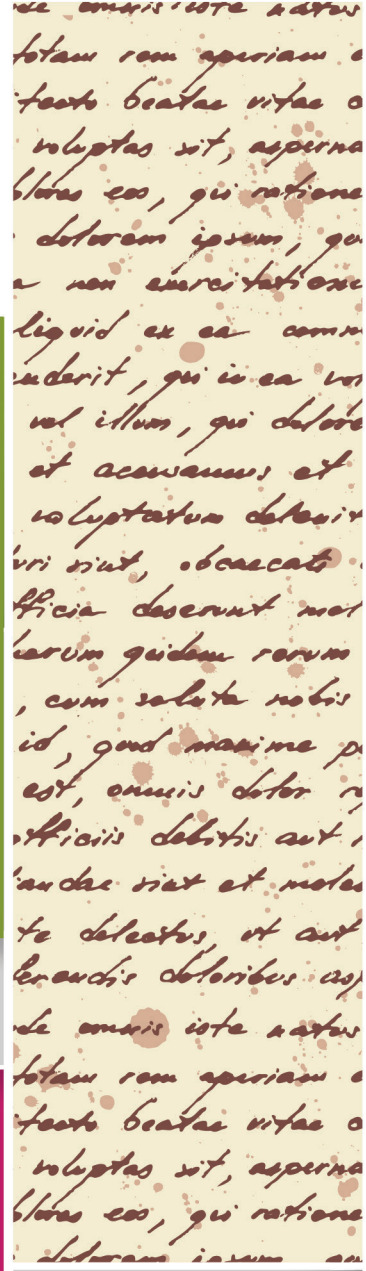 de omnis iste natus
totam rem aperiam
tecto beatae vitae
voluptas sit, asperna
lores eos, qui ratione
dolorem ipsum, qu
non exercitatione
liquid ex ea comm
nderit, qui in ea vo
vel illum, qui dolore
et accusamus et
voluptatum delenit
uri sint, obcaecati
fficia deserunt mol
harum quidem rerum
, cum soluta nobis
id, quod maxime p
est, omnis dolor r
officiis debitis aut
andae sint et moles
te delectus, ut aut
ferendis doloribus asp
de omnis iste natus
totam rem aperiam
tecto beatae vitae
voluptas sit, asperna
lores eos, qui ratione
dolorem ipsum, qu